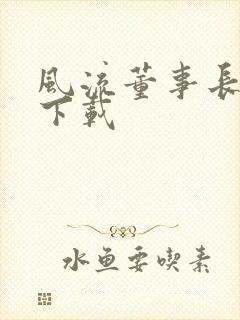 風流董事長
下載
水鱼要喫素